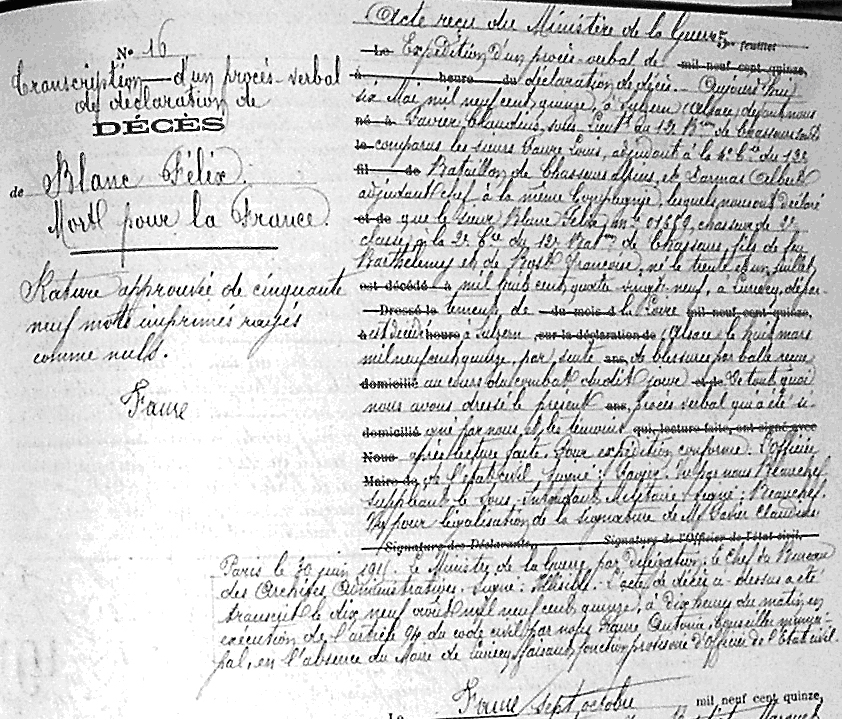 Acte reçu du Ministère de la Guerre
feuillet
N° 16
Transcription d'un procès-verbal
de déclaration de
DÉCÈS
de Blanc Félix
Mort pour la France.
Rature approuvée de cinquante
neuf mots imprimés rayés
comme nuls.
Faure
Le Expédition d'un procès-verbal de mil neuf cent quinze,
à heure du déclaration de décès. Aujourd'hui
six Mai mil neuf cent quinze, à Sulzern (Alsace) devant nous
né à Favier Claudius, sous Lieut du 12e Bon de Chasseurs
le comparus les sieurs Louis, adjudant à la 4e Cie du 12e
fil de Bataillon de Chasseurs alpins, et Darmas Albert
adjudant chef à la même Compagnie, lesquels nous ont déclaré
et de que le sieur Blanc Félix, mle 01559, chasseur de 2e
classe, à la 2e Cie du 12e Baton de Chasseurs, fils de feu
Barthélemy et de Françoise, né le trente et un juillet
est décédé à mil huit cent quatre vingt-neuf, à Lurcy, dépar-
Dressé le tement de du mois d la Loire mil neuf cent quinze,
à est décédé heure à Sulzern, sur la déclaration de (Alsace) le huit mars
mil neuf cent quinze, par suite ans, de blessures par balle reçue
domicilié au cours du combat dudit jour et de De tout quoi
nous avons dressé le présent ans, procès verbal qui a été si-
domicilié gné par nous et les témoins qui, lecture faite, ont signé avec
Nous après lecture faite. Pour expédition conforme. L'Officier
Maire de de l'état civil signé: Vu par nous Beauchef
suppléant le Sous-Intendant Militaire signé: Beauchef.
Vu pour légalisation de la signature de Mr Favier Claudius
Signature des Déclarants, Signature de l'Officier de l'état civil,
Paris le 30 juin 1915. Le Ministre de la Guerre, par délégation, le Chef du Bureau
des Archives Administratives. Signé: Illisible. L'acte de décès ci-dessus a été
transcrit le dix neuf août mil neuf cent quinze, à dix heures du matin, en
exécution de l'article 94 du code civil, par nous Faure Antoine, Conseiller munici-
pal, en l'absence du Maire de Lurcy, faisant fonction provisoire d'Officier de l'Etat civil.
Faure
sept octobre mil neuf cent quinze,
Le